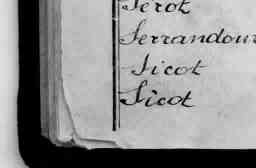 Serot
Serrandour
Sicot
Sicot